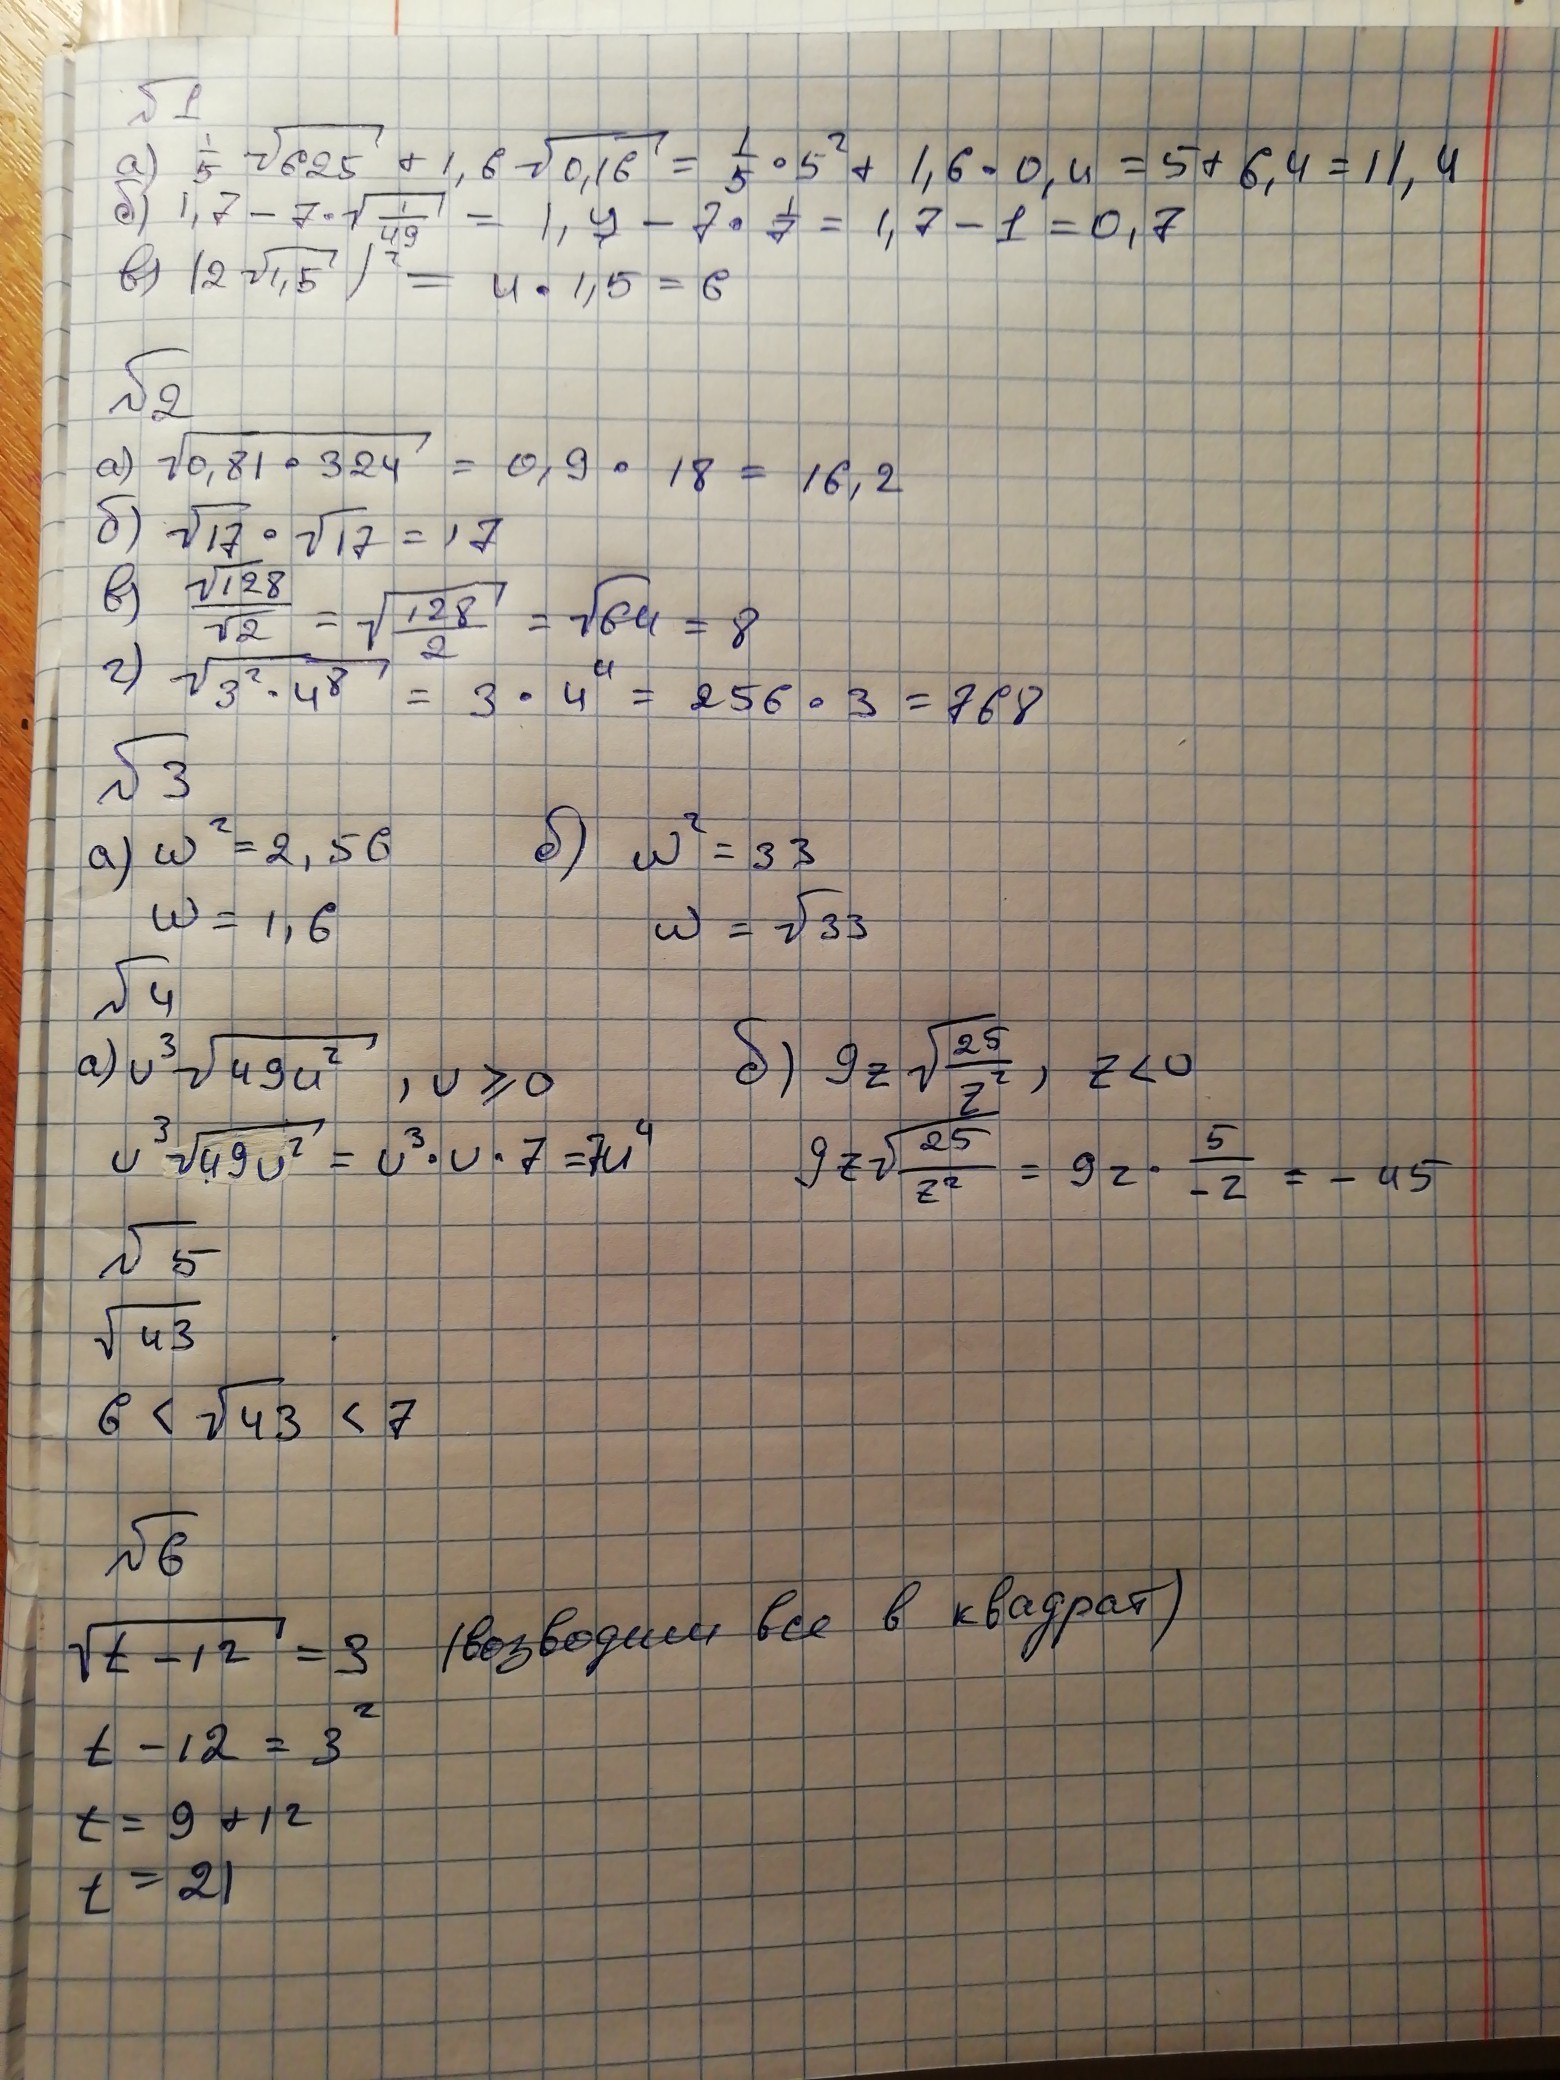 √1
а) 1/5 √625 + 1,6 √0,16 = 1/5 · 5² + 1,6 · 0,4 = 5 + 6,4 = 11,4
б) 1,7 − 7 · √(1/49) = 1,7 − 7 · 1/7 = 1,7 − 1 = 0,7
в) (2√1,5)² = 4 · 1,5 = 6
√2
а) √(0,81 · 324) = 0,9 · 18 = 16,2
б) √17 · √17 = 17
в) √128/√2 = √(128/2) = √64 = 8
г) √(3² · 4⁸) = 3 · 4⁴ = 256 · 3 = 768
√3
а) w² = 2,56 б) w² = 33
w = 1,6 w = √33
√4
а) u³√(49u²) , u ⩾ 0 б) 9z√(25/z²), z < 0
u³√(49u²) = u³ · u · 7 = 7u⁴ 9z√(25/z²) = 9z · 5/−z = − 45
√5
√43
6 < √43 < 7
√6
√(t − 12) = 3 (возводим все в квадрат)
t − 12 = 3²
t = 9 + 12
t = 21